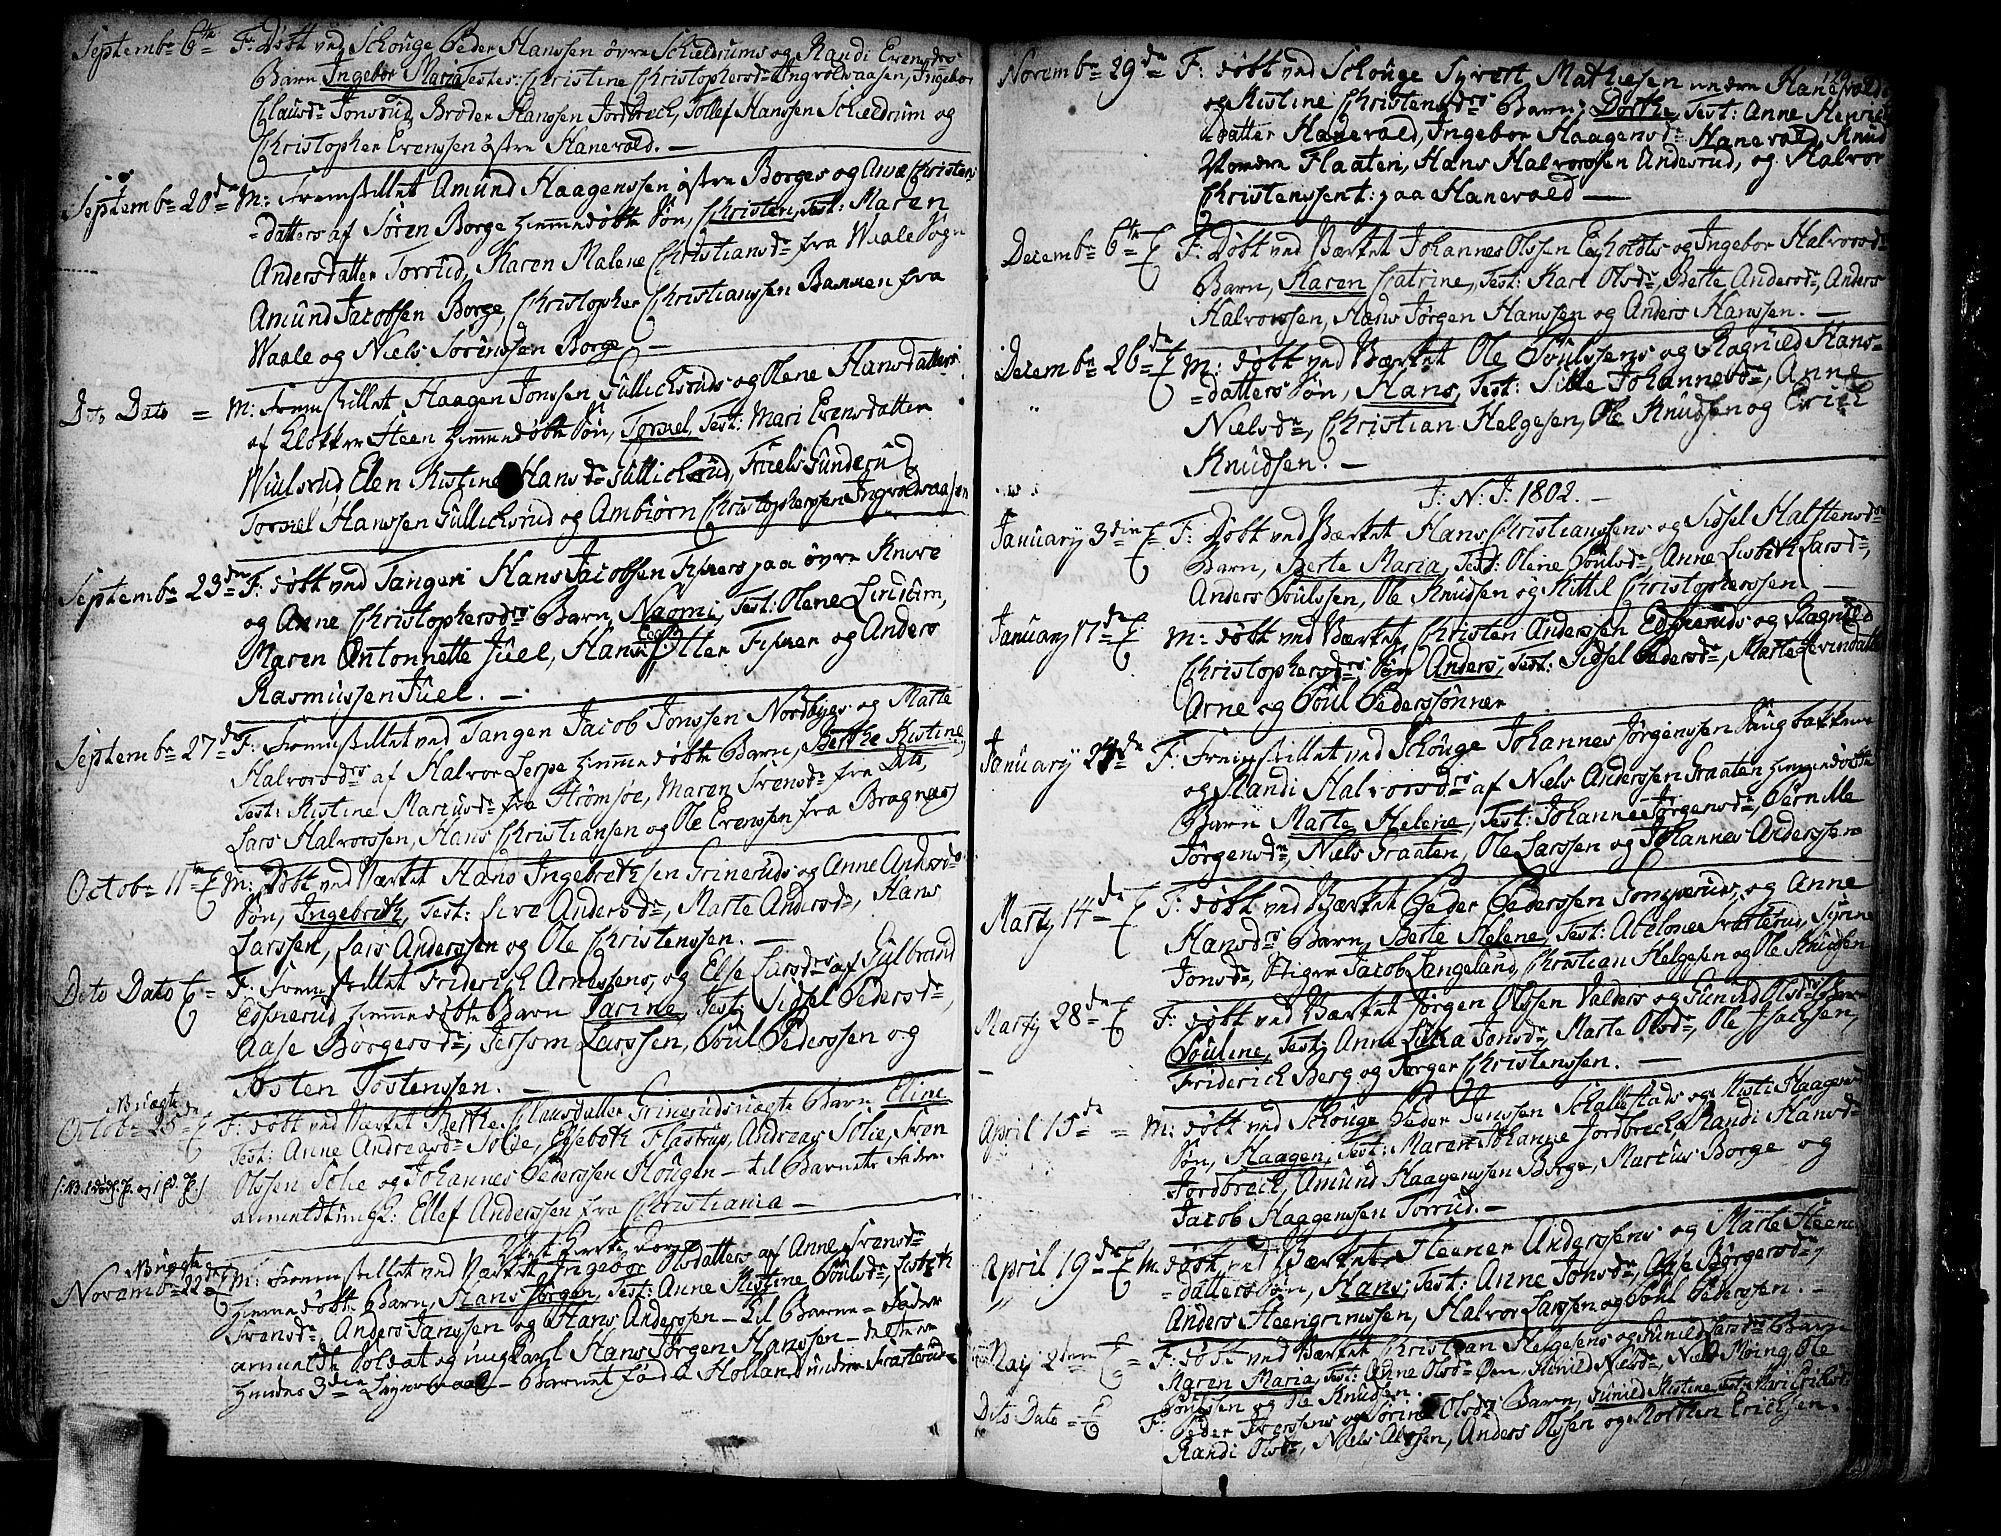 Septembr 6te F: Døbt ved Schouge Peder Hanssen øvre Schieldrums og Randi Evensdrs
Barn Ingebor Maria Testes: Christine Christophersdr Ingvoldsaasen, Ingebor
Clausdr Jonsrud, Broder Hanssen Jordbreck, Tollef Hanssen Schieldrum og
Christopher Evenssen østre Hanevold. —
Septembr 20de M: Fremstillet Amund Haagenssen østre Borges og Anne Christens
datters af Søren Borge hiemmedøbte Søn, Christen, Test: Maren
Andersdatter Torrud, Karen Malene Christiansdr fra Waale Sogn
Amund Jacobsen Borge, Christopher Christianssen Bannen fra
Waale og Niels Sørenssen Borge —
Dito Dato = M: Fremstillet Haagen Jonssen Gullichsruds og Olene Hansdatters
af Klokker Steen hiemmedøbte Søn, Torsten, Test: Mari Evensdatter
Wiulsrud Elen Kistine Hansdr Gullichsrud, Truels Gunderud
Hanssen Gullichsrud og Ambiørn Christopherssen Ingvoldsaasen
Septembr 23de F: døbt ved Tangen Hans Jacobsen Fiskers paa øvre Knive
og Anne Christophersdrs Barn, Naomi, Test: Olene Lindum,
Maren Antonnette Juel, Hans Otter Fisker og Anders
Rasmussen Juel. —
Septembr 27de F: Fremstillet ved Tangen Jacob Jonssen Nordbyes og Marte
Halvorsdrs af Halvor Lerpe hiemmedøbte Barn, Berthe Kistine,
Test: Kistine Marcusdr fra Strømsøe, Maren Svensdr fra Dito,
Lars Halvorssen, Hans Christiansen og Ole Evenssen fra Bragnæs
Octobr 11te E M: Døbt ved Værket Hans Ingebrethsen Grineruds og Anne Andersdrs
Søn, Ingebreth, Test: Live Andersdr, Marte Andersdr, Hans
Larssen, Lars Anderssen og Ole Christenssen. —
Dito Dato E = F: Fremstillet Friderich Arnessens og Else Larsdrs af Gulbrand
Edsnerud hiemmedøbte Barn Larine, Test, Sidsel Pedersdr,
Aase Børgersdr, Jersom Larssen, Poul Pederssen og
Tosten Tostenssen. —
NB uægte
Octobr 25de E F: døbt ved Værket Berthe Clausdatter Grineruds uægte Barn Eline
Test: Anne Andreasdr Solie, Elsebeth Flastrup, Andreas Solie, Sven
Olssen Solie og Johannes Pederssen Hougen — til Barnets Fader
anmeldt ungk: Ellef Anderssen fra Christiania —
NB uægte
Novembr 22de E M: Fremstillet ved Værket Ingebor Olsdatters af Anne Svensdr
hiemmedøbte Barn, Hans Jørgen, Test: Anne Kistine Poulsdr, Lisbeth
Svensdr, Anders Janssen og Hans Anderssen — til Barne-Fader
anmeldt Soldat og ungkarl Hans Jørgen Hanssen — dette er
hendes 3die Leyermaal — Barnet fød a Holland under Frasterud
129
Novembr 29de F: døbt ved Schouge Syvert Mathiesen nedre Hanevolds
og Kistine Christensdrs Barn, Dorthe, Test: Anne Henrichs
datter Hanevold, Ingebor Haagensdr Hanevold, Knud
Flaaten, Hans Halvorssen Anderud, og Halvor
Christenssen t: paa Hanevold —
Decembr 6te E F: Døbt ved Værket Johannes Olssen Egholdts og Ingebor Halvorsdrs
Barn, Karen Catrine, Test: Kari Olsdr, Berte Andersdr, Anders
Halvorssen, Hans Jørgen Hanssen og Anders Hanssen. —
Decembr 26de E M: døbt ved Værket Ole Poulssens og Ragnild Hans-
datters Søn, Hans, Test: Sille Johannesdr, Anne
Nielsdr, Christian Helgesen, Ole Knudsen og Erich
Knudsen. —
J: N: J: 1802. —
January 3die E F: Døbt ved Værket Hans Christianssens og Sidsel Halstensdrs
Barn, Berte Maria, Test: Olene Poulsdr, Anne Lisbeth Larsdr,
Anders Poulssen, Ole Knudsen og Kittil Christopherssen. —
January 17de E M: døbt ved Værket, Christen Anderssen Edsneruds og Ragnild
Christophersdrs Søn Anders, Test: Sidsel Pedersdr, Marte Evindatter
Arne og Poul Pederssønner
January 24de F: Fremstillet ved Schouge Johannes Jørgenssen Haugbakkens
og Randi Halvorsdrs af Niels Anderssen Graaten hiemmedøbte
Barn Marte Helene, Test: Johanne Jørgensdr, Pernille
Jørgensdr, Niels Graaten, Ole Larssen og Johannes Anderssen
Marty 14de E F: døbt ved Værket Peder Pederssen og Anne
Hansdrs Barn, Berte Helene, Test: Abelone Frasterud, Syrine
Jonsdr, Stiger Jacob Langelund, Christian Helgesen og Ole Knudsen
Marty 28de E F: døbt ved Værket Jørgen Olssen Valders og Gunild Olsdrs Barn
Pouline, Test: Anne Lukia Jonsdr, Marte Olsdr, Ole Isacsen,
Friderich Berg og Jørger Christenssen. —
April 15de = M: døbt ved Schouge Peder Jenssen Schallestads og Kisti Haagensdrs
Søn, Haagen, Test: Maren Johanne Jordbreck, Randi Hansdr
Jordbreck, Amund Haagenssen Borge, Marcus Borge og
Jacob Haagenssen Torrud. —
April 19de E M: døbt ved Værket Steener Anderssens og Marte Steener
datters Søn, Hans, Test: Anne Jonsdr, Aase Børgersdr,
Anders Steengrimssen, Halvor Larssen og Poul Pederssen. —
May 2den E = F: døbt ved Værket Christian Helgesens og Gunild Larsdrs Barn
Maren Maria, Test: Anne Olsdr Øen, Gunild Nielsdr, Niels Moing, Ole
Poulssen og Ole Knudsen.
Dito Dato = E F: Peder Iverssens og Sørine Olsdrs Barn, Gunild Kistine Test: Mari
Randi Olsdr, Niels Olssen, Anders Olssen og Morthen Erichsen.